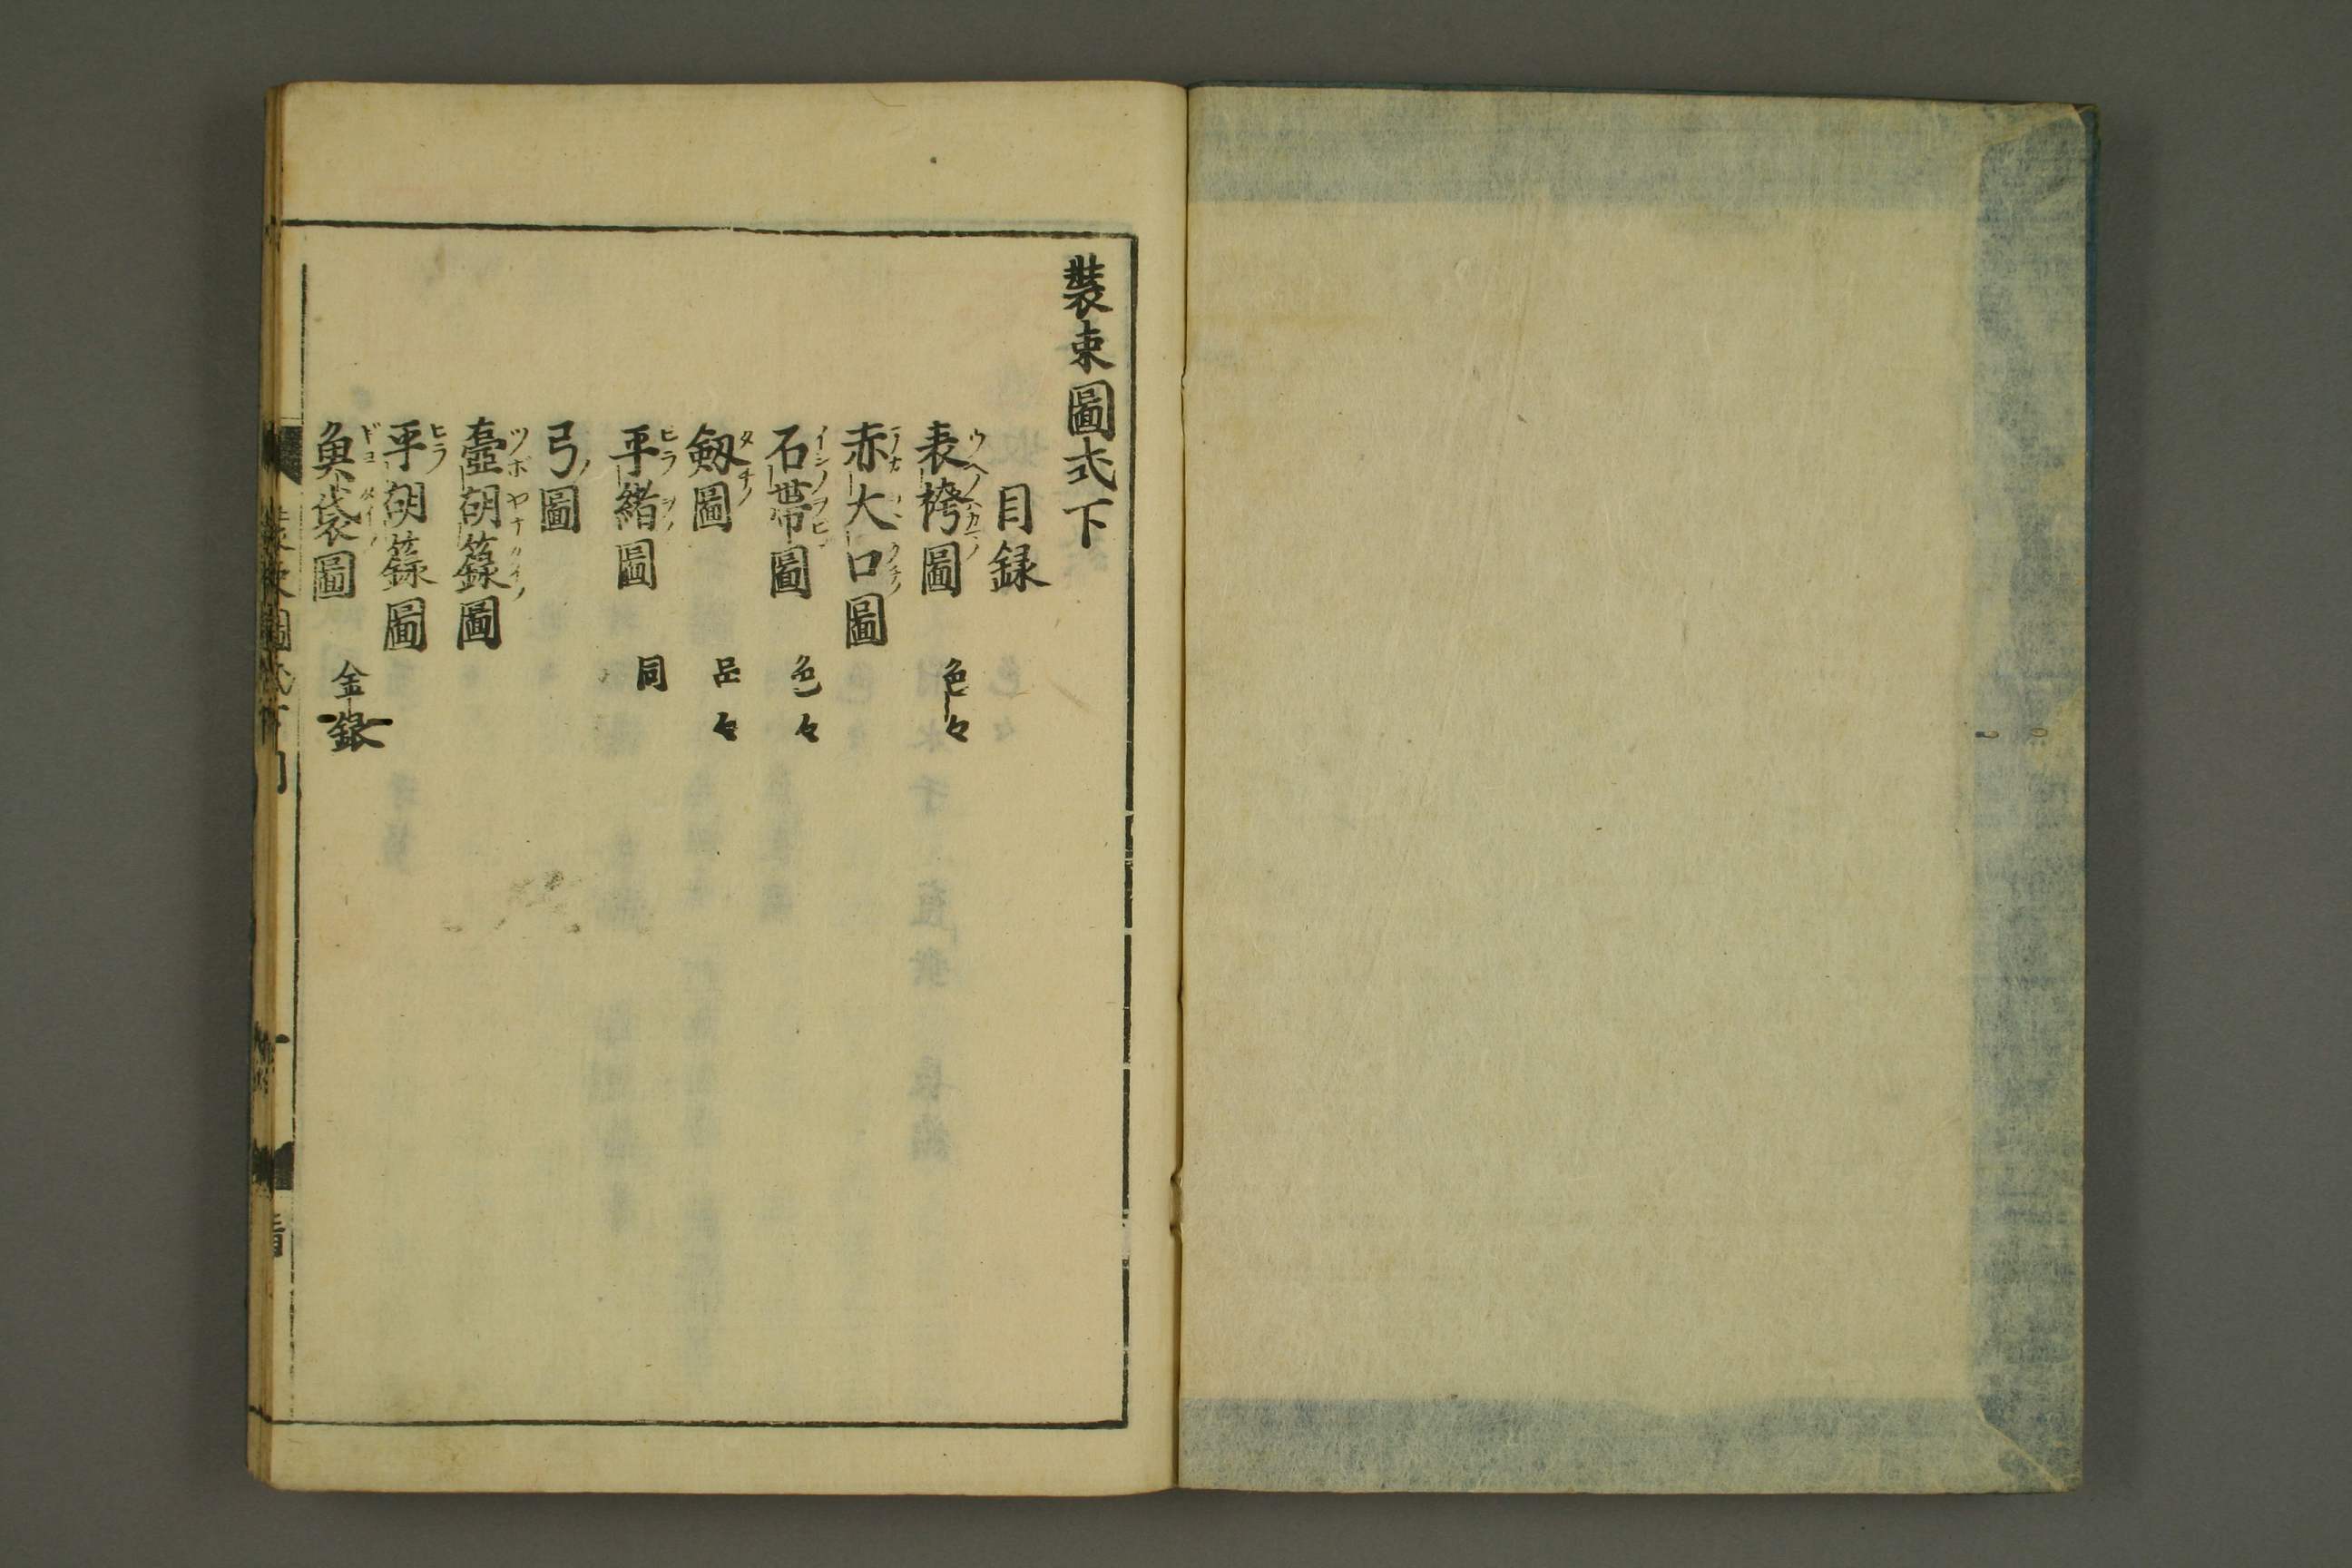 裝束圖式下
目録
表袴圖 色々
赤大口圖
石帯圖 色々
劔圖 品々
平緒圖 同
弓圖
壺胡籙圖
平胡籙圖
魚袋圖 金銀